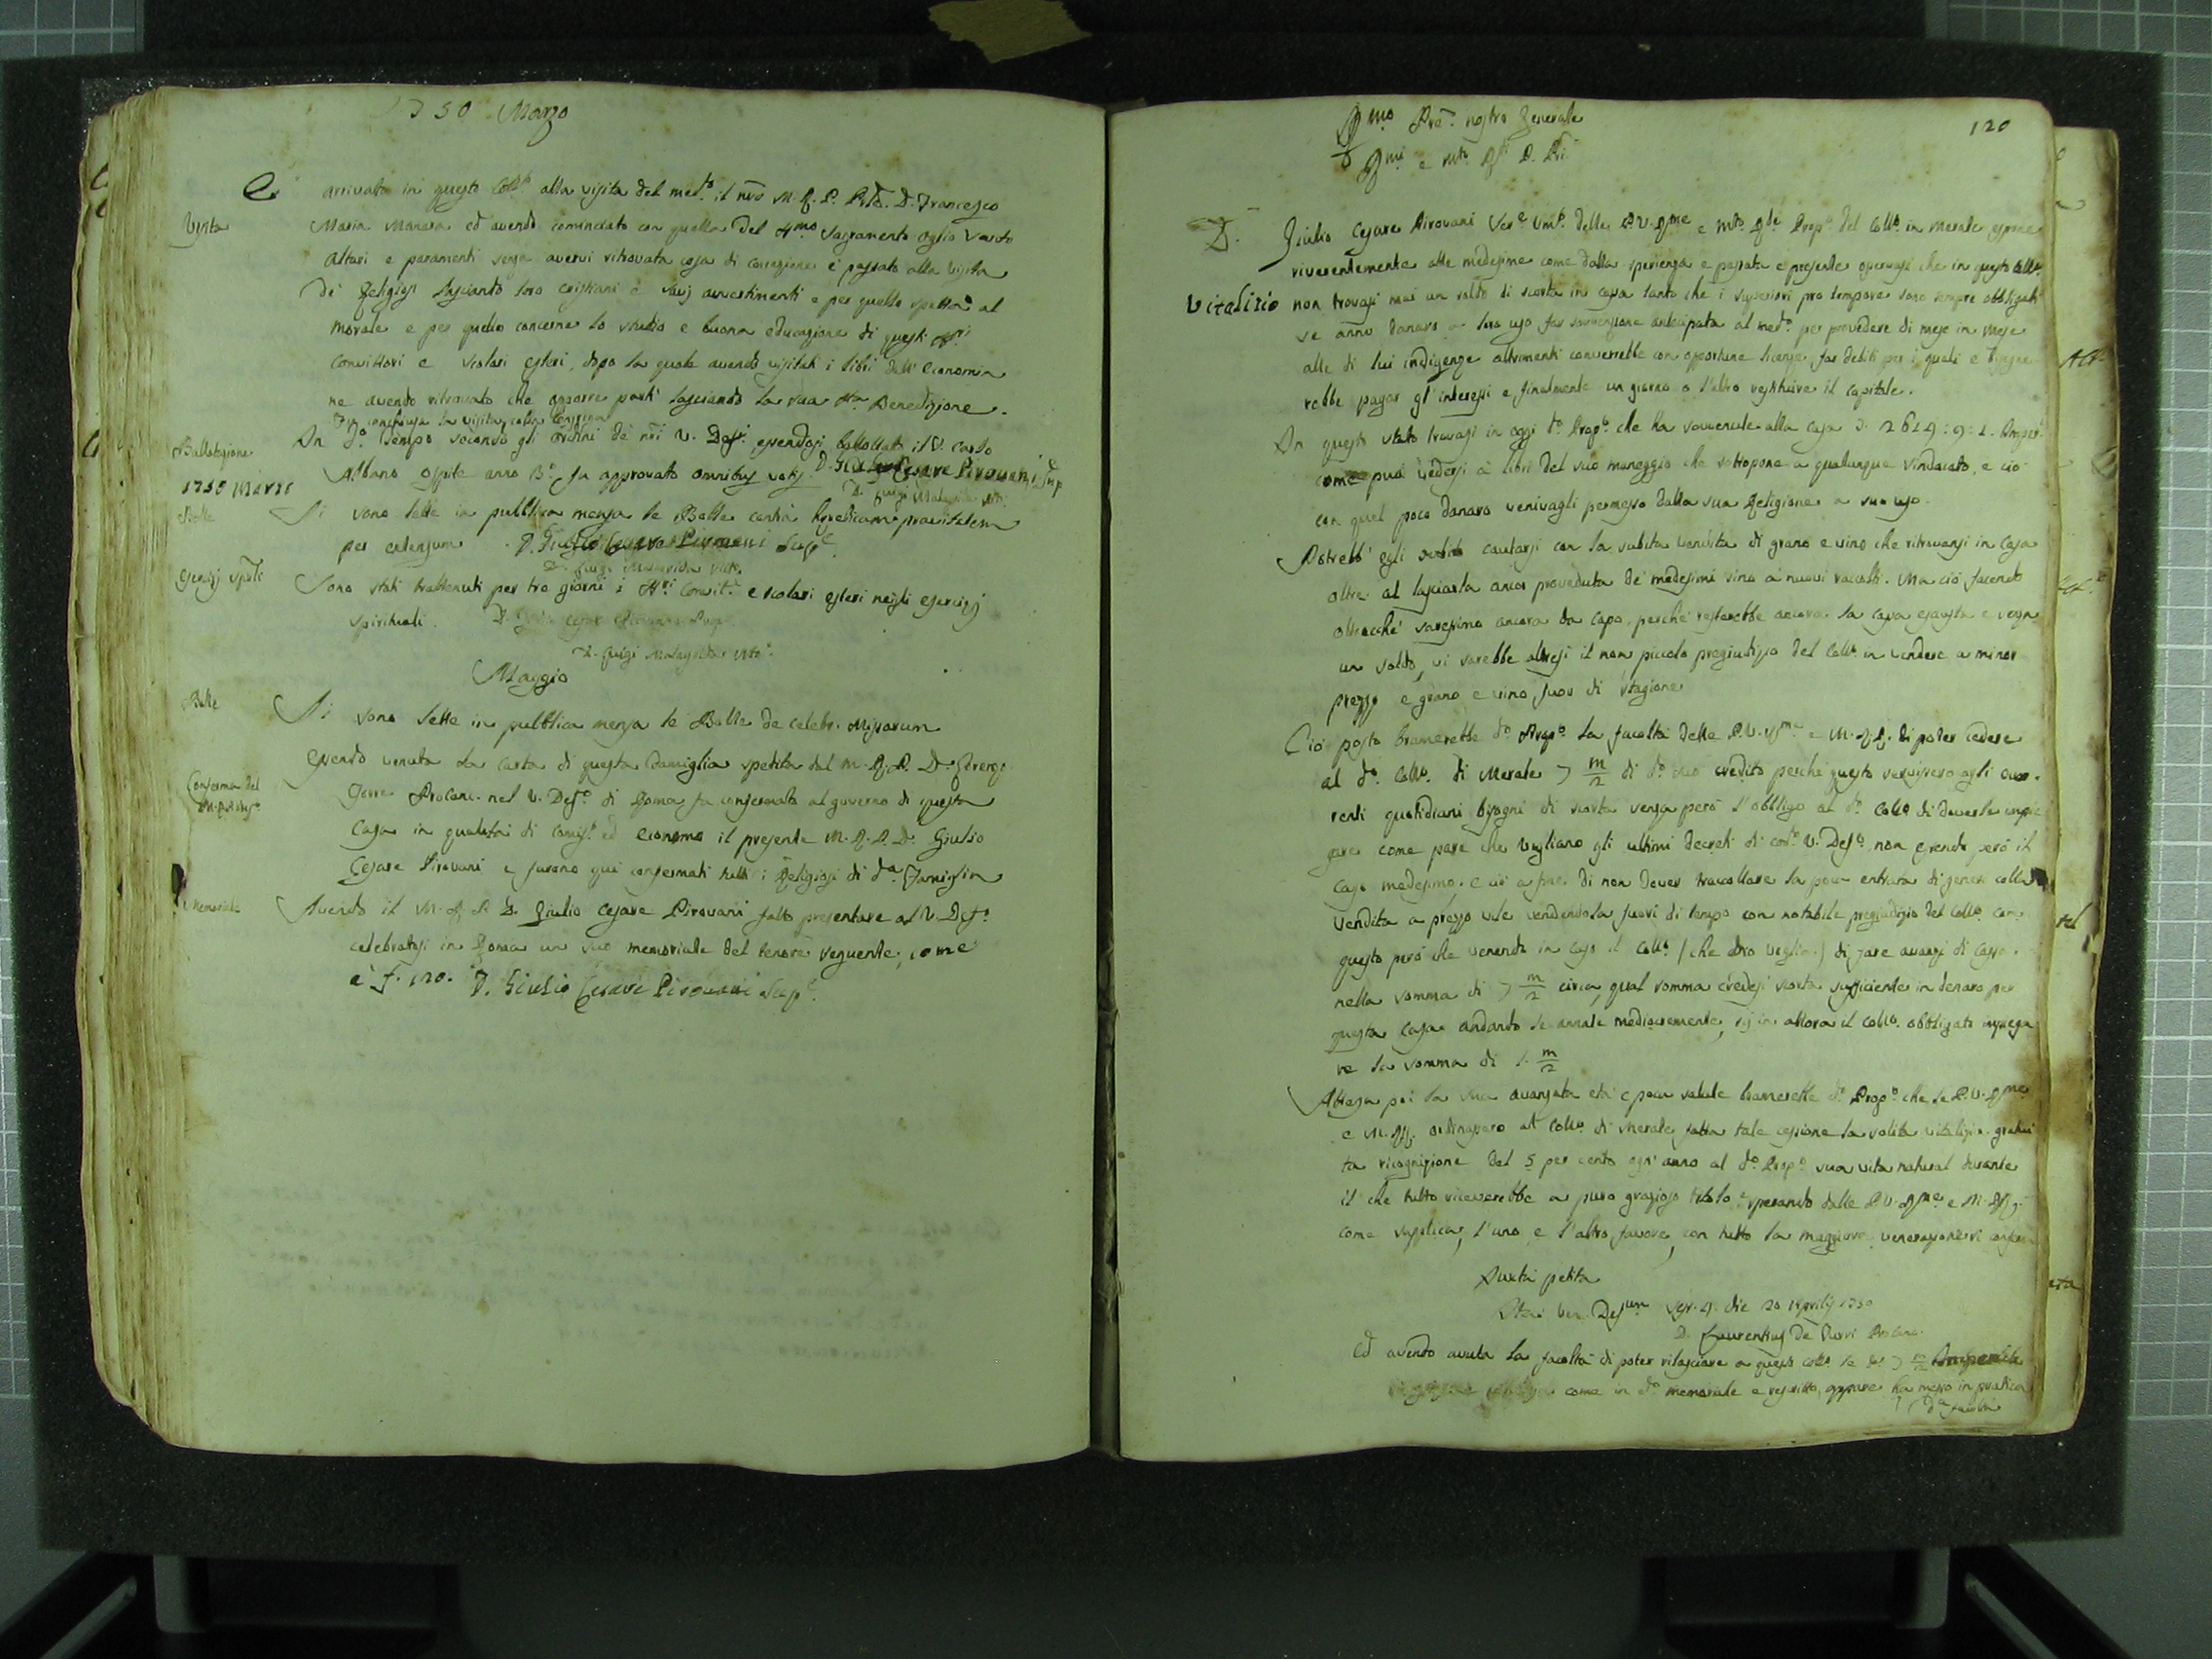 1750 Marzo
È arrivato in questo Coll.o alla visita del med.o il nro M. R. P. D. Francesco
Visita
Maria Manara ed avendo cominciato con quella del SSmo Sagramento oglio Santo
altari e paramenti senza avervi ritrovata cosa di correzione è passato alla visita
de Religiosi lasciando loro cristiani e savij avvertimenti e per quello spetta al
morale e per quello concerne lo studio e buona educazione di questi SS.ri
Convittori e scolari esteri, dopo la quale avendo visitati i libri dell' economia
ne avendo ritrovato che opporre partì lasciando la sua Sta Benedizione.
conchiusa la visita colla
Ballotazione
In do tempo secondo gli ordini de nri V. Def.i essendosi ballottato il S. Carlo
Albano ospite anno 13.o fu approvato omnibus votis. D. Giulio Cesare Pirovani Sup.e
1750 Marzo
D. Luigi Malagrida Att.o
Bolle
Si sono lette in pubblica mensa le Bolle contra hereticam pravitatem
per extensum. D. Giulio Cesare Pirovani Sup.e
D. Luigi Malagrida Att.o
Esercizj sp.li
Sono stati trattenuti per tre giorni i SS.ri Convit.i e scolari esteri negli esercizj
spirituali. D. Giulio Cesare Pirovani Sup.e
D. Luigi Malagrida Att.o
Maggio
Bolle
Si sono lette in pubblica mensa le Bolle de celebr. Missarum
Essendo venuta la carta di questa Famiglia spedita dal M. R. P. D. Lorenzo
Conferma del
M. R. P. Prep.o
Proconc. nel V. Def.o di Roma fu confermato al governo di questa
Casa in qualità di ed economo il presente M. R. P. D. Giulio
Cesare Pirovani e furono qui confermati tutti i Religiosi di da Famiglia
Memoriale
Avendo il M. R. P. D. Giulio Cesare Pirovani fatto presentare al V. Def.o
celebratosi in Roma un suo memoriale del tenore seguente, come
a f. 120. D. Giulio Cesare Pirovani Sup.e
120
Rmo Pre. nostro Generale
Rmi e Mto RR. P. Pri
D. Giulio Cesare Pirovani Ser.e Um.o delle P. V. Rme e Mto RR.de Prep.o del Coll.o in Merate espone
riverentemente alle medesime come dalla sperienza e passata e presente operarsi che in questo Coll.o
Vitalizio
non trovasi mai un soldo di scorta in cassa tanto che i superiori pro tempore sono sempre obbligati
se anno danaro a loro uso far sovvenzione anticipata al med.o per provedere di mese in mese
alle di lui indigenze altrimenti converrebbe con opportune licenze far debiti per i quali e
rebbe pagar gl' interessi e finalmente un giorno o l'altro restituire il capitale.
In questo stato trovasi in oggi do Prep.o che ha sovvenute alla casa 2619:9:1.
come può vedersi a libri del suo maneggio che sottopone a qualunque sindacato, e ciò
con quel poco danaro venivagli permesso dalla sua Religione a suo uso.
Potrebb' egli subito cautarsi con la subita vendita di grano e vino che ritrovansi in casa
oltre al lasciarla ancor proveduta de medesimi sino a nuovi raccolti. Ma ciò facendo
oltrecché saressimo ancora da capo, perché resterebbe ancora la casa esausta e senza
un soldo, vi sarebbe altresì il non piccolo pregiudizio del Coll.o in vendere a minor
prezzo e grano e vino fuor di stagione
Ciò posto bramerebbe do Prep.o la facoltà delle P. V. Rme e M. R. R. di poter cedere
al do Coll.o di Merate m/2 di do suo credito perché questo servissero agli occor-
renti quotidiani bisogni di scorta senza però l'obbligo al do Coll.o di doverle impie
gare come pare che vogliano gli ultimi decreti di cod.o V. Def.o non essendo però il
caso medesimo. e ciò a fine di non dover tracollare la poca entrata di generi colla
vendita a prezzo vile vendendola fuori di tempo con notabile pregiudizio del Coll.o con
questo però che venendo in caso il Coll.o (che Dio voglia) di fare avanzi di cassa
nella somma di m/2 circa, qual somma credesi scorta sufficiente in denaro per
questa casa andando le annate mediocremente, sij in allora il Coll.o obbligato impiega
re la somma di m/2
Attesa poi la sua avanzata età e poca salute bramerebbe do Prep.o che le P. V. Rme
e M. RR. ordinassero al Coll.o di Merate fatta tale cessione la solita vitalizia gratui
ta ricognizione del 5 per cento ogn' anno al do Prep.o sua vita natural durante
il che tutto riceverebbe a puro grazioso titolo e sperando dalle P. V. Rme e M. RR.
come supplica, l'uno e l'altro favore, con tutta la maggiore venerazione si
Juxta petita
Ven. Def.um Sess. 4. die 20 Aprilis 1750
D. Laurentius De Proconc.
Ed avendo avuta la facoltà di poter rilasciare a questo Coll.o le de m/2 Imperiali
come in do memoriale e rescritto appare ha messo in pratica
da facoltà